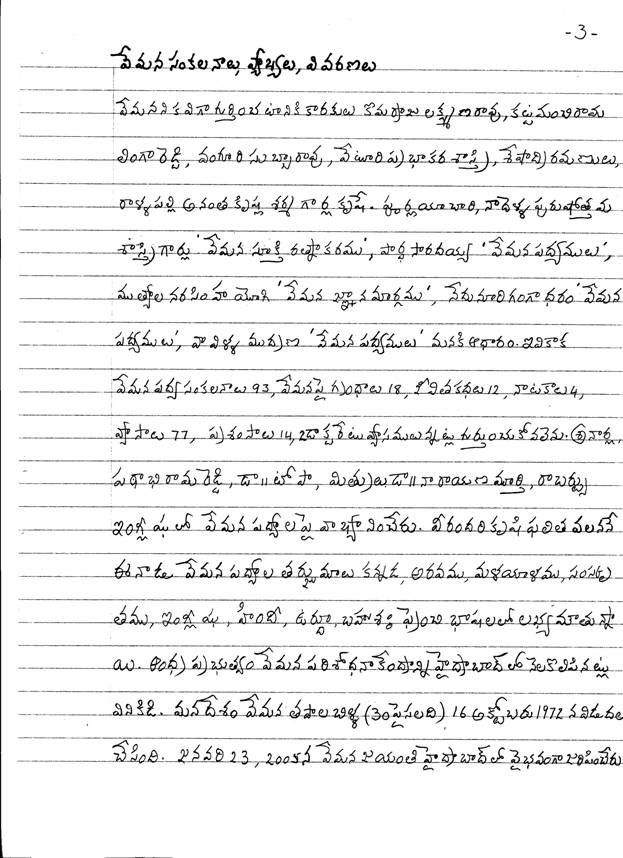 -3-
వేమన సంకలనాలు, వ్యాఖ్యలు, వివరణలు
వేమనని కవిగా గుర్తించటానికి కారకులు కొమర్రాజు లక్ష్మణరావు, కట్టమంచి రామ
లింగారెడ్డి, వంగూరి సుబ్బారావు, వేటూరి ప్రభాకర శాస్త్రి, శేషాద్రి రమణులు,
రాళ్ళపల్లి అనంతకృష్ణ శర్మ గార్ల కృషే. పూర్ణయాచారి, నాదెళ్ళ పురుషోత్తమ
శాస్త్రి గార్లు 'వేమన సూక్తి రత్నాకరము', పార్థ సారదయ్య 'వేమన పద్యములు',
ముత్యాల నరసింహ యోగి 'వేమన జ్ఞాన మార్గము', నేదునూరి గంగాధరం 'వేమన
పద్యములు', వావిళ్ళ ముద్రణ 'వేమన పద్యములు' మనకి ఆధారం. ఇవికాక
వేమన పద్య సంకలనాలు 93, వేమనపై గ్రంథాలు 18, జీవితకథలు 12, నాటకాలు 4,
వ్యాసాలు 77, ప్రశంసాలు 14, 2 డాక్టరేటు వ్యాసములున్నట్లు గుర్తుంచుకోవలెను. శ్రీ నార్ల,
పఠాభి రామ రెడ్డి, డా॥ లోపా, మిత్రులు డా॥ నారాయణ మూర్తి, రాబర్ట్సు
ఇంగ్లీషులో వేమన పద్యాలపై వాఖ్యానించేరు. వీరందరి కృషి ఫలిత వలననే
ఈనాడు వేమన పద్యాల తర్జుమాలు కన్నడ, అరవము, మళయాళము, సంస్కృ
తము, ఇంగ్లీషు, హిందీ, ఉర్దూ, బహుశః ఫ్రెంచి భాషలలో లభ్యమౌతున్నా
యి. ఆంధ్ర ప్రభుత్వం వేమన పరిశోధనా కేంద్రాన్ని హైద్రాబాద్ లో నెలకొలిపినట్లు
వినికిడి. మనదేశం వేమన తపాలబిళ్ళ (30 పైసలది) 16 అక్టోబరు 1972 న విడుదల
చేసింది. జనవరి 23, 2005న వేమన జయంతి హైద్రాబాద్ లో వైభవంగా జరిపించేరు